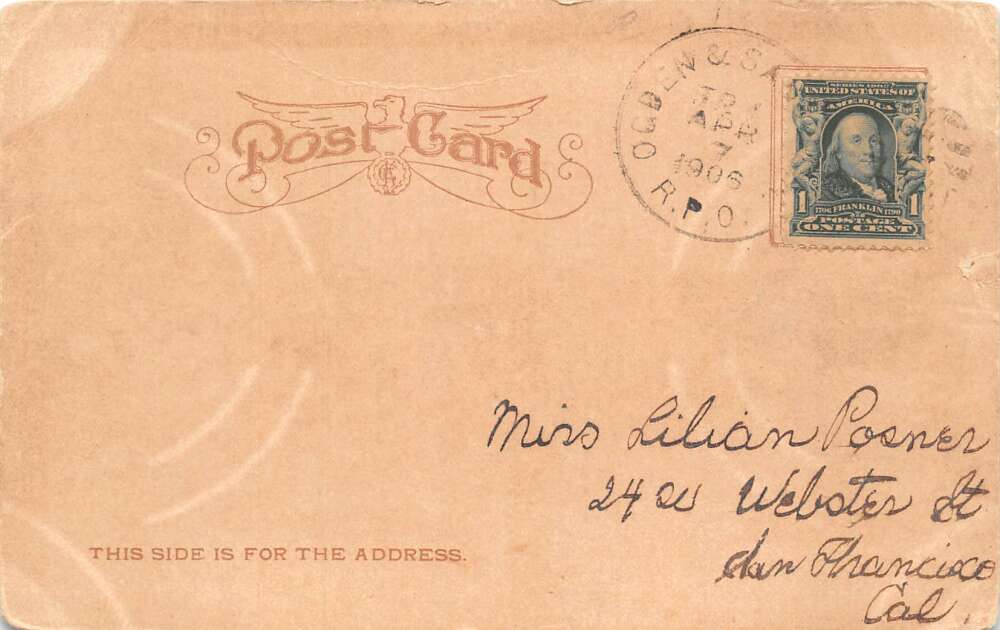 Post Card
OGDEN & SA
APR
7
1906
R.P.O.
SERIES 1902
UNITED STATES OF
AMERICA
1 1
1706 FRANKLIN 1790
POSTAGE
ONE CENT
Miss Lilian Posner
Webster St
San Francisco
Cal.
THIS SIDE IS FOR THE ADDRESS.